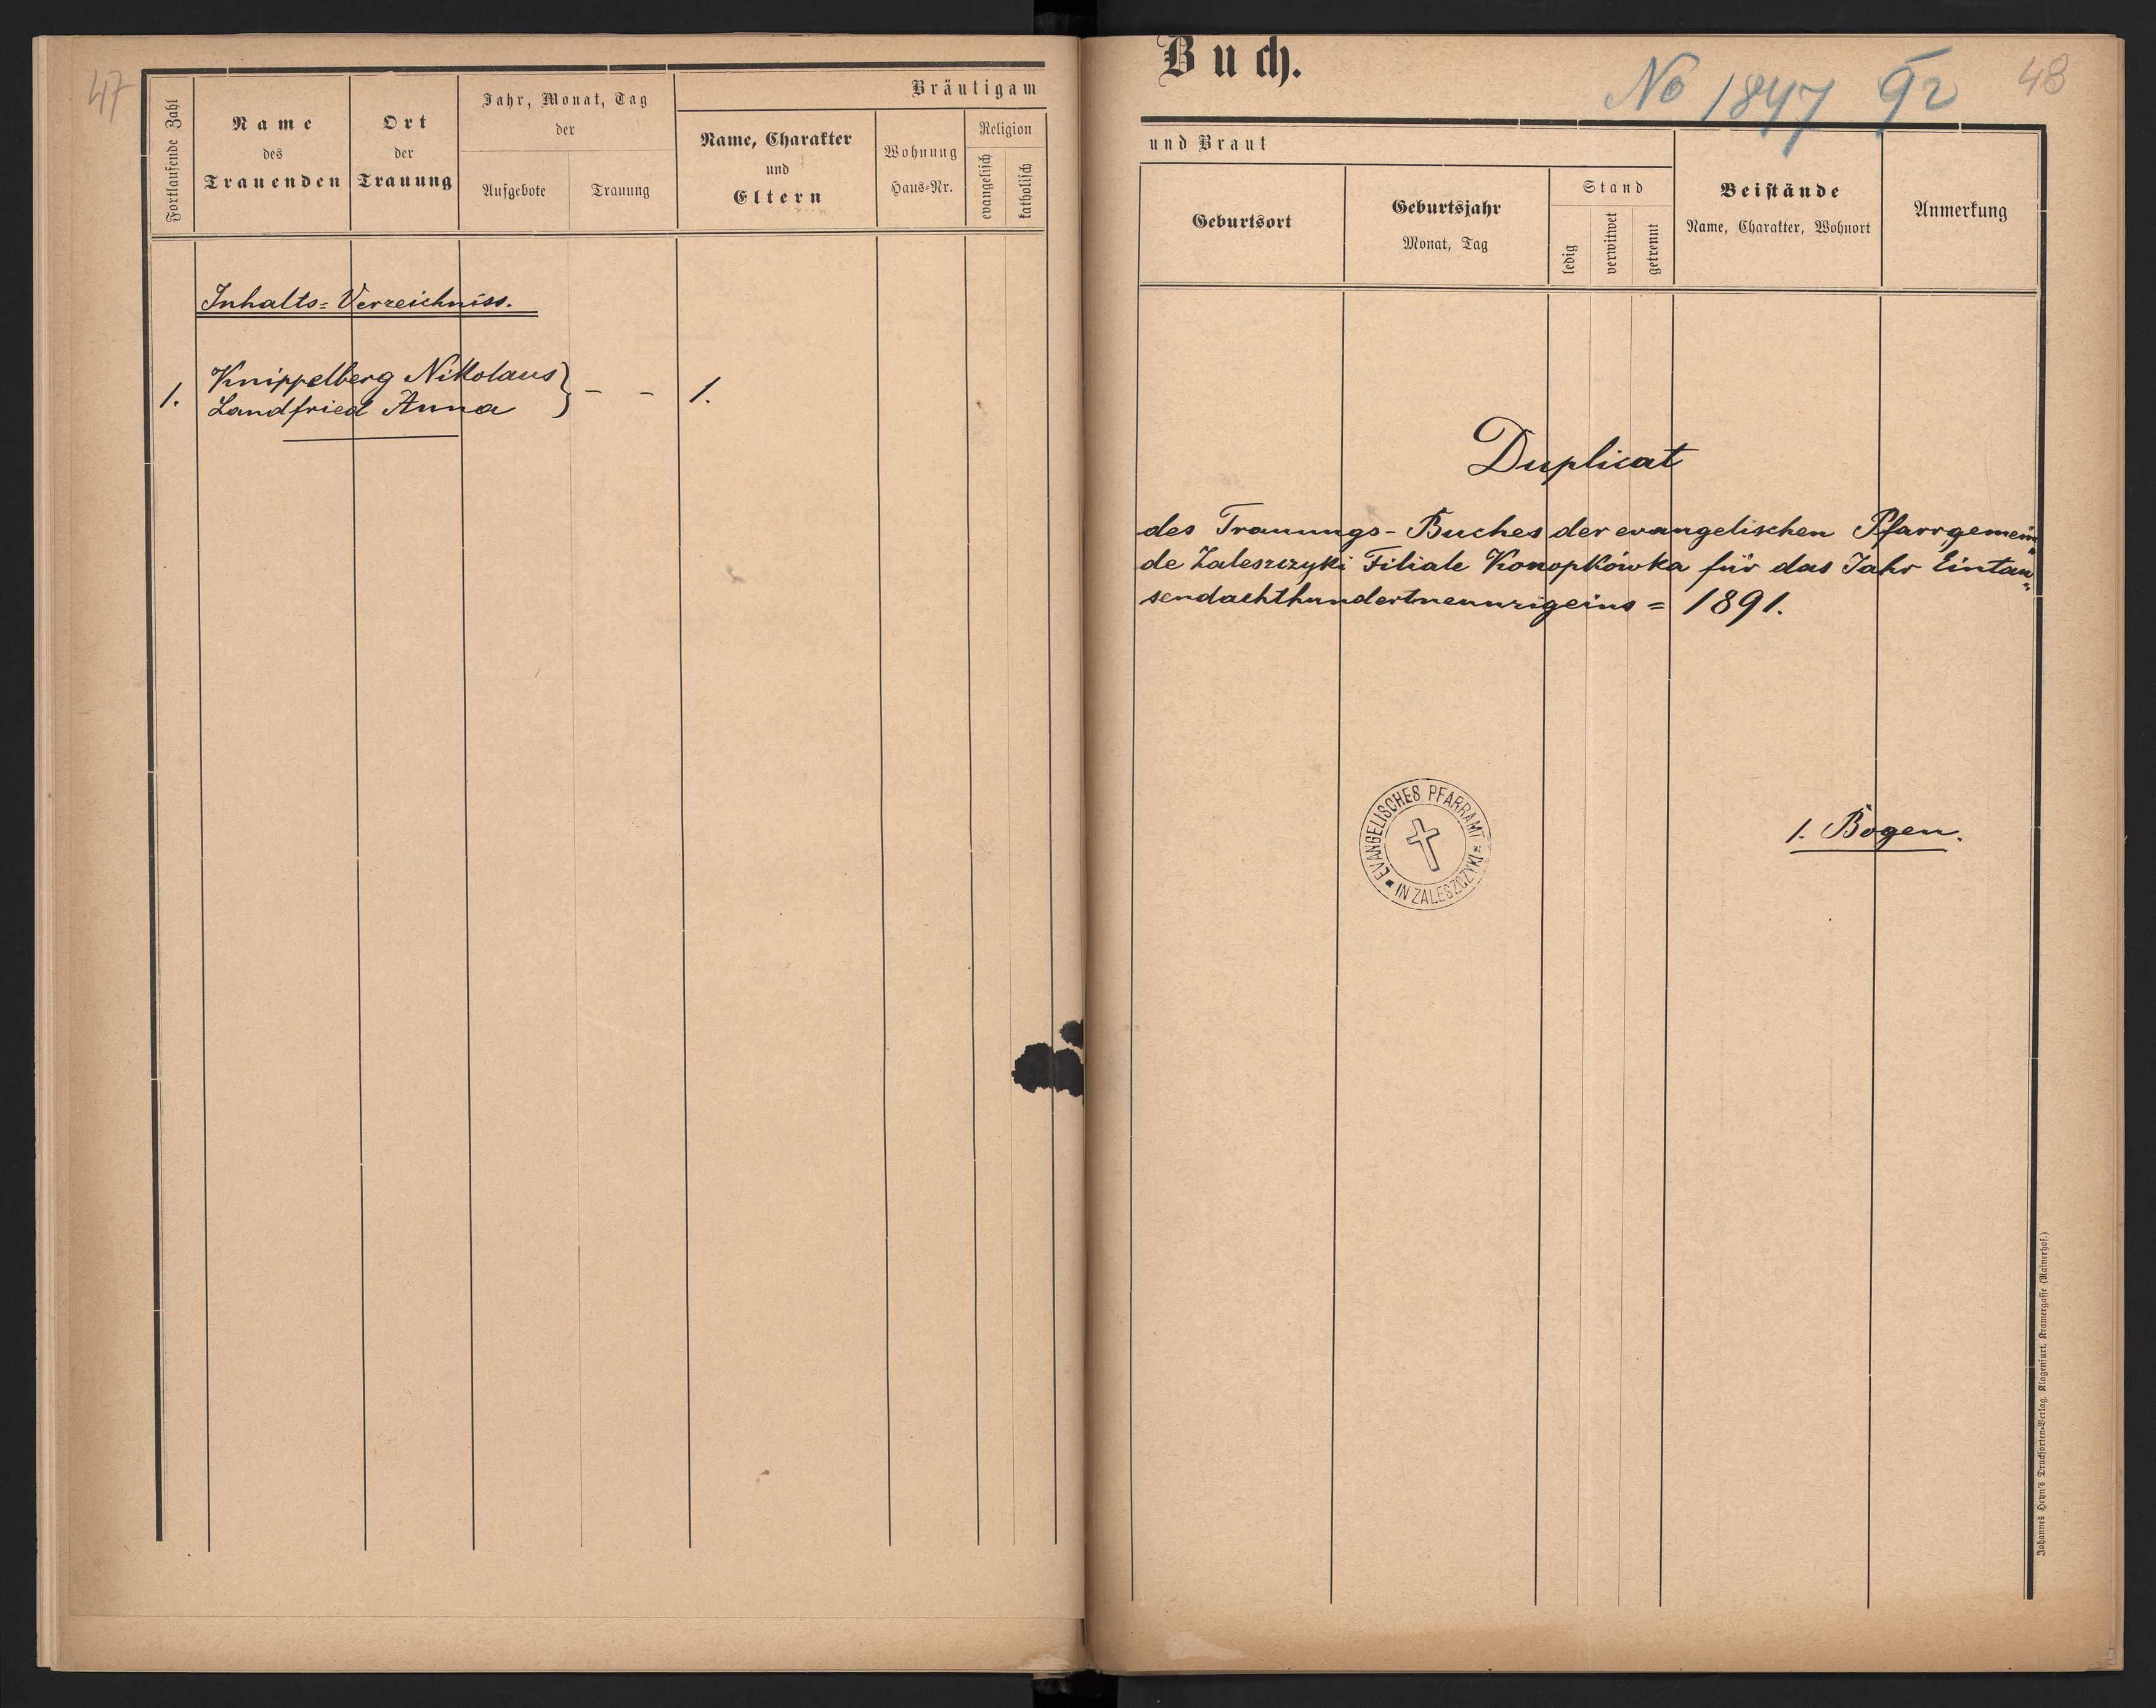 47
Fortlaufende Zahl
Name
des
Trauenden
Ort
der
Trauung
Jahr, Monat, Tag
der
Aufgebote
Trauung
Bräutigam
Name, Charakter
und
Eltern
Wohnung
Haus-Nr.
Religion
evangelisch
katholisch
Inhalts-Verzeichniss.
1. Knippelberg Nikolaus } - - 1.
Landfried Anna
Buch.
No 1847 92
48
und Braut
Geburtsort
Geburtsjahr
Monat, Tag
Stand
ledig
verwitwet
getrennt
Beistände
Name, Charakter, Wohnort
Anmerkung
Duplicat
des Trauungs-Buches der evangelischen Pfarrgemein-
de Zaleszczyki Filiale Konopkówka für das Jahr Eintau-
sendachthundertneunzigeins = 1891.
EVANGELISCHES PFARRAMT
IN ZALESZCZYKI
1. Bogen.
Johannes Heyn's Drucksorten-Verlag, Klagenfurt, Kramergasse (Rainerhof.)